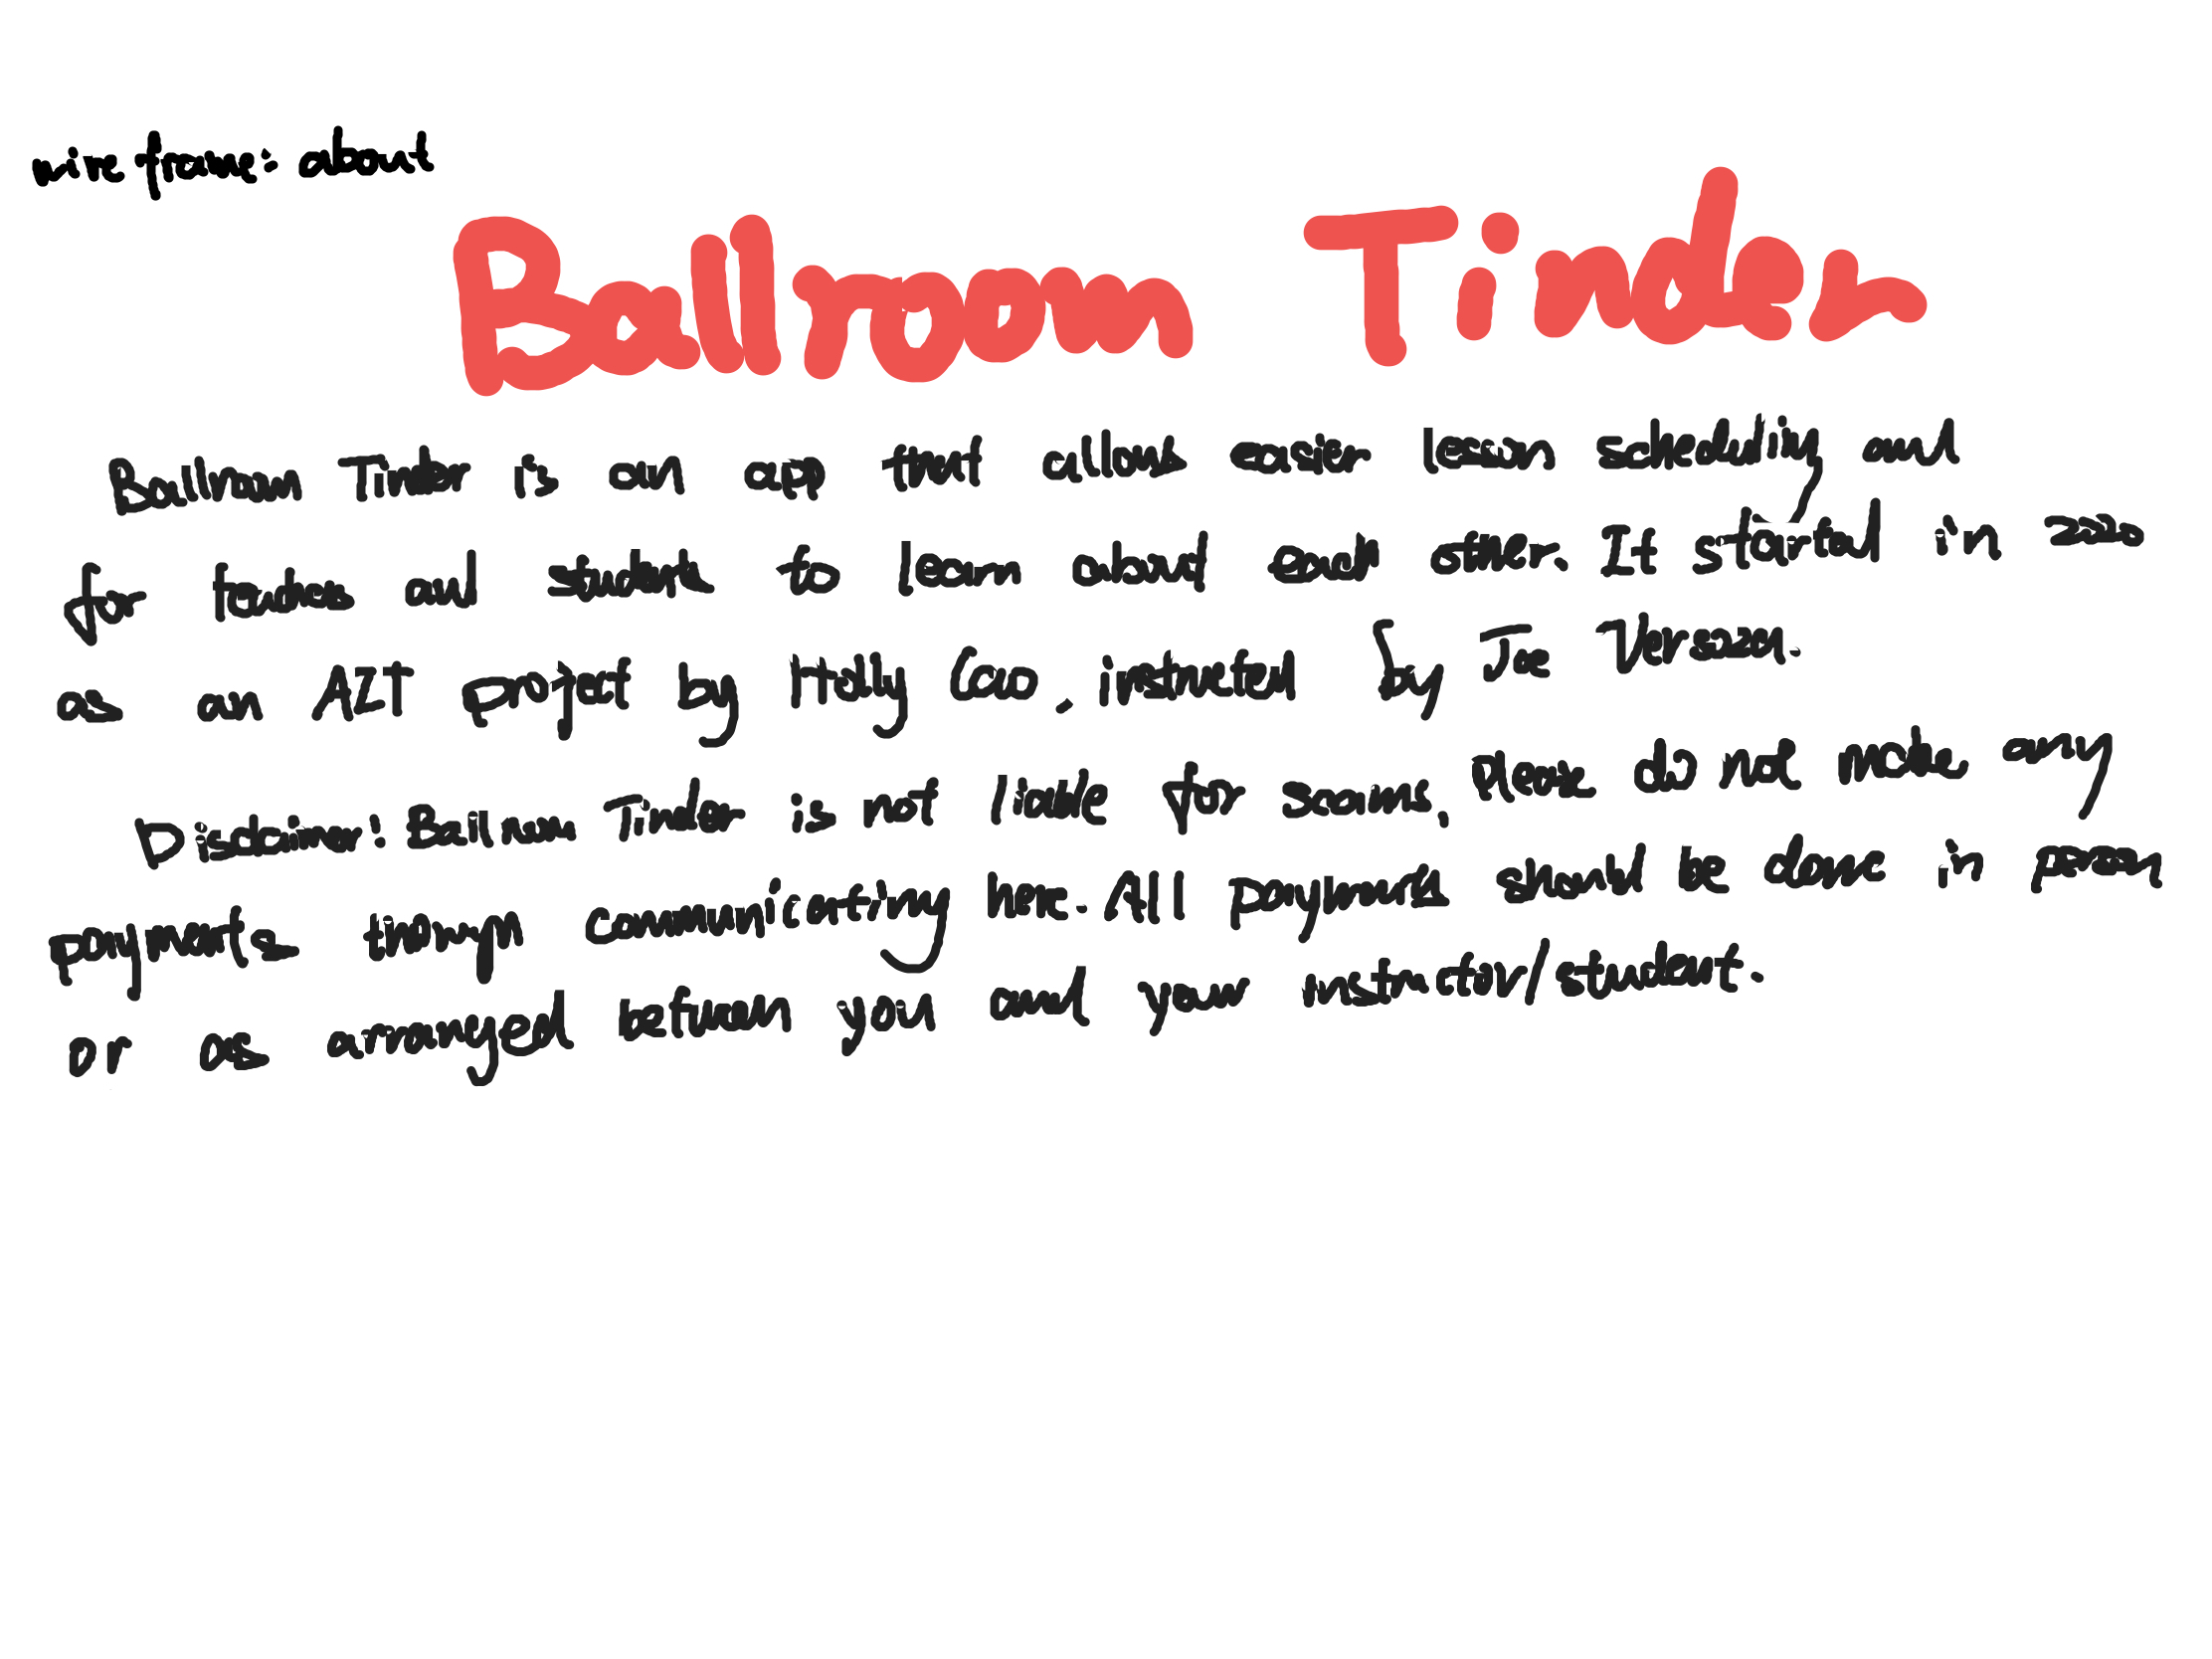 wireframe: about
Ballroom Tinder
Ballroom Tinder is an app that allows easier lesson scheduling and
for teachers and students to learn about each other. It started in 2020
as an AIT project by Holly Cao, instructed by Joe Versoza.
Disclaimer: Ballroom Tinder is not liable for scams. Please do not make any
payments through communicating here. All payments should be done in person
or as arranged between you and your instructor/student.